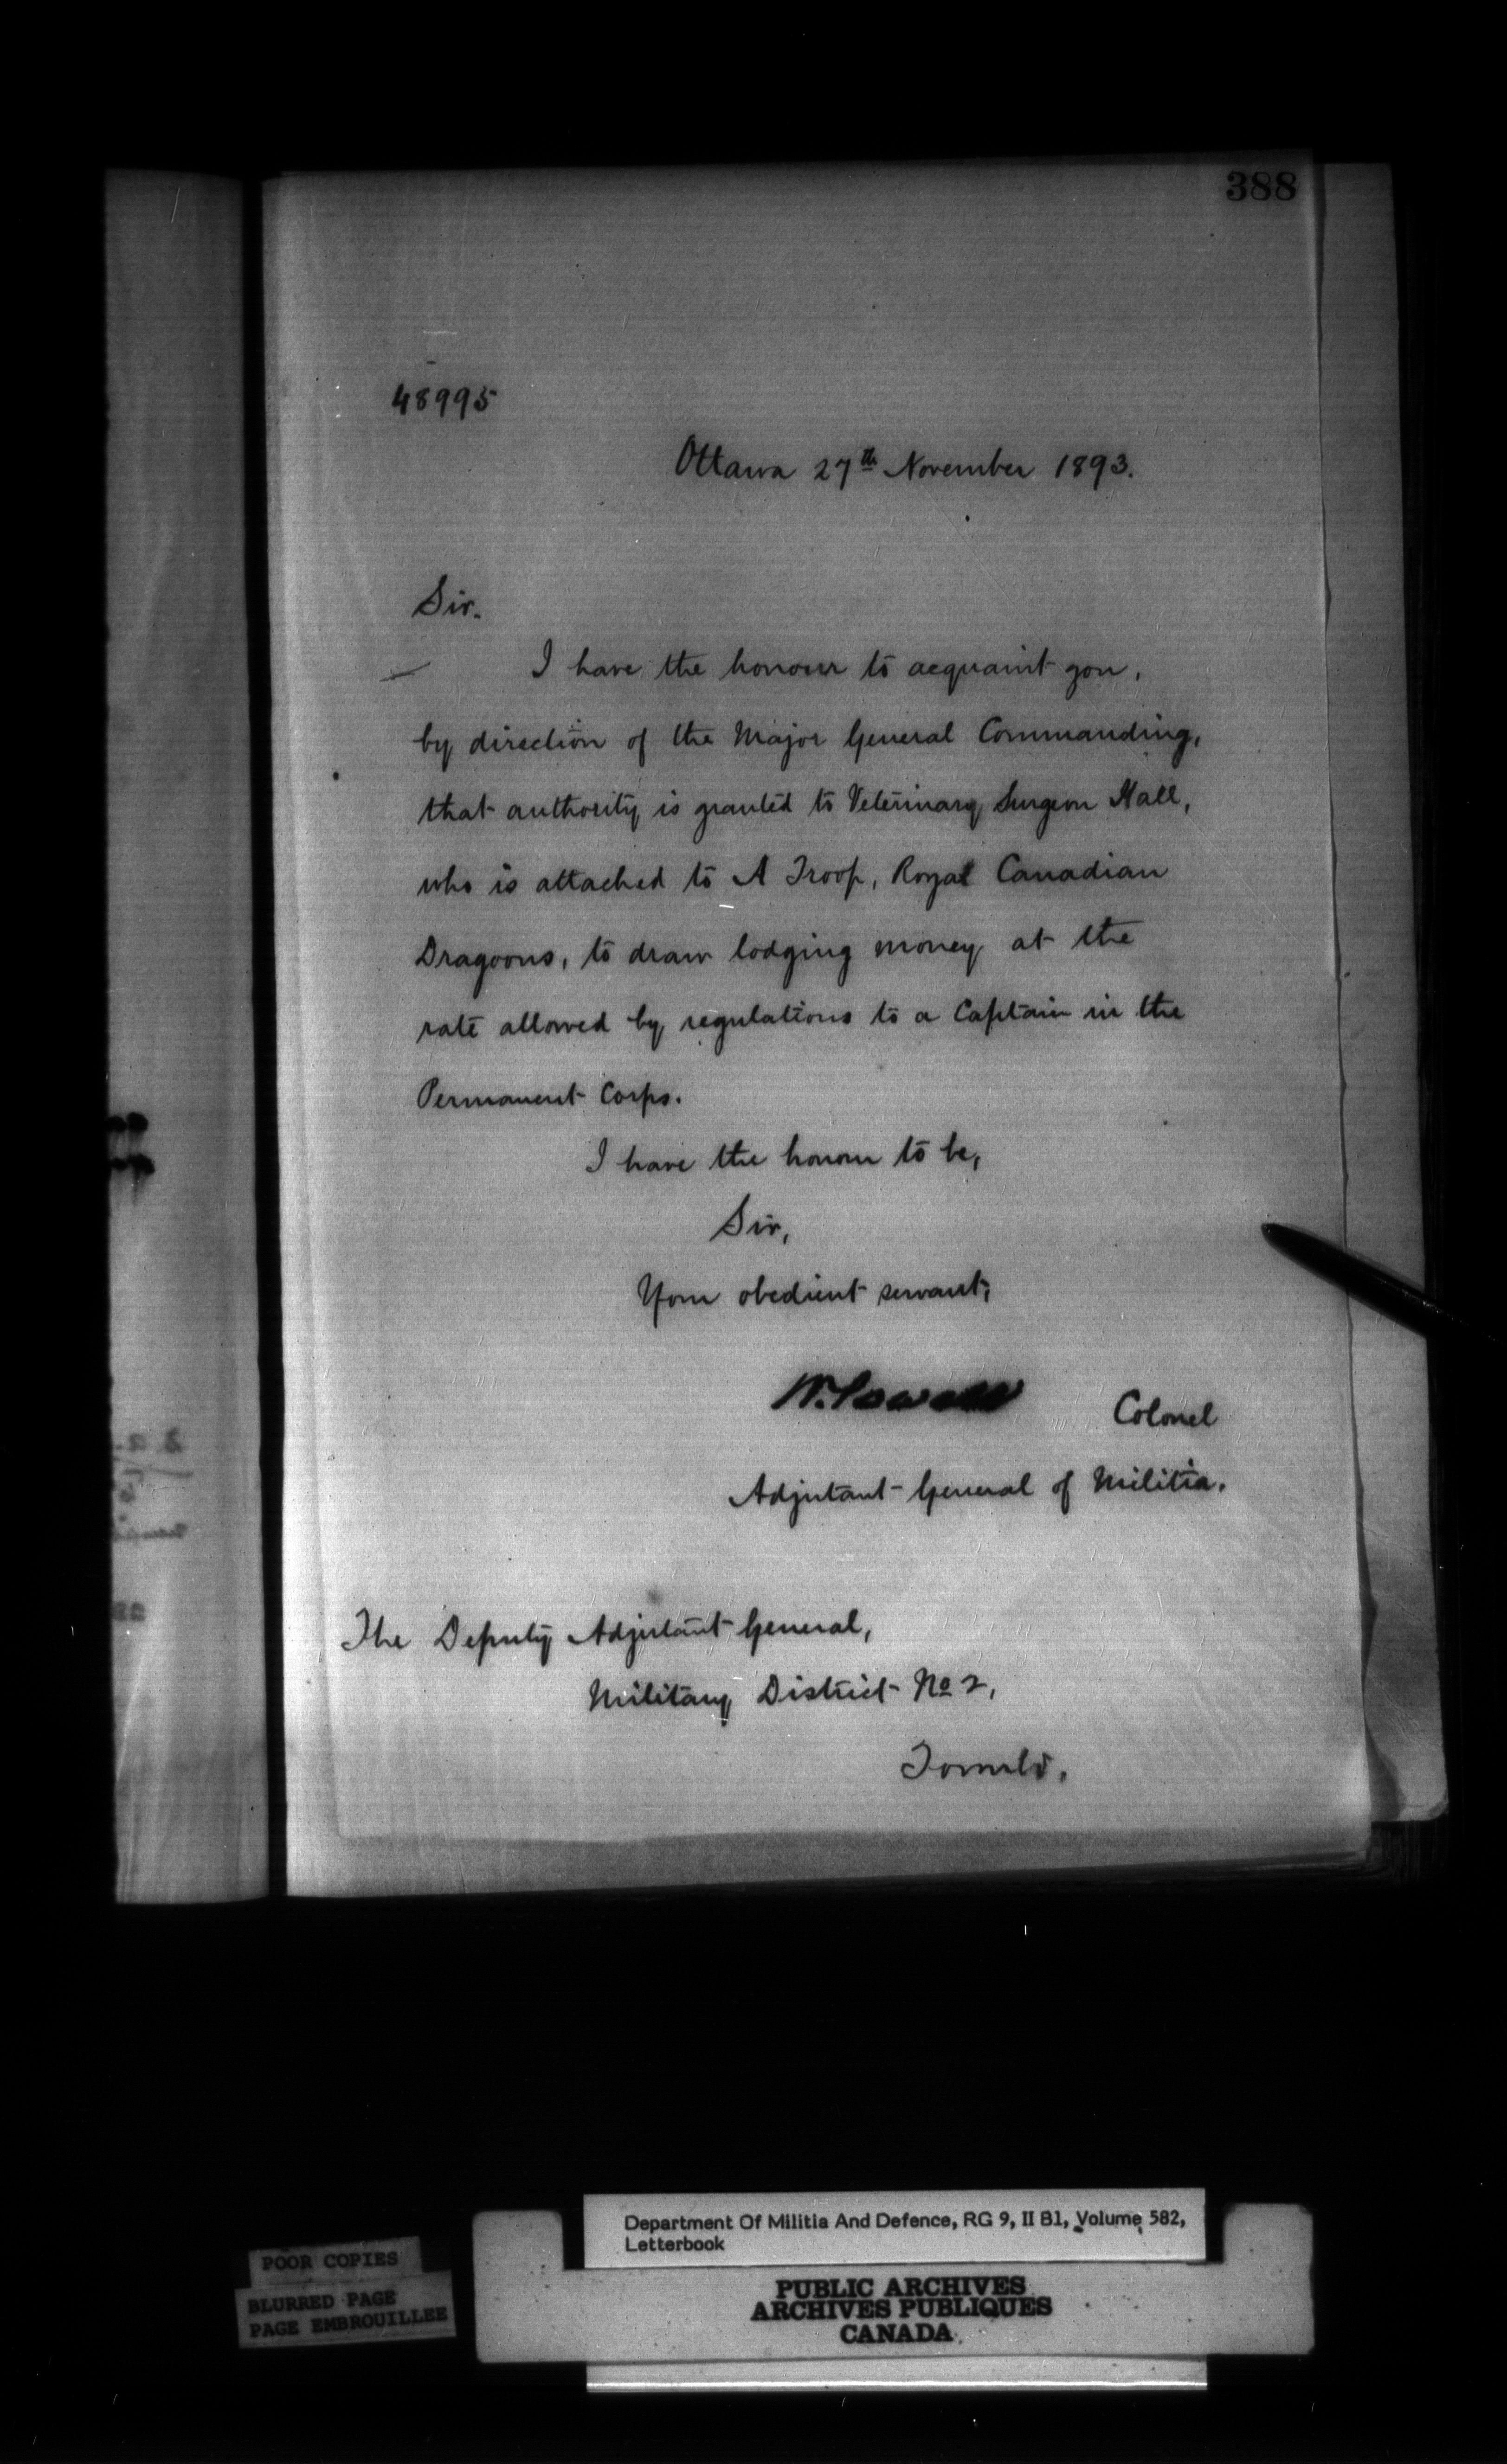 388
48995
Ottawa 27th November 1893.
Sir.
I have the honour to acquaint you,
by direction of the Major General Commanding,
that authority is granted to Veterinary Surgeon Hall,
who is attached to A Troop, Royal Canadian
Dragoons, to draw lodging money at the
rate allowed by regulations to a Captain in the
Permanent Corps.
I have the honour to be,
Sir,
Your obedient servant,
W. Powell Colonel
Adjutant General of Militia.
The Deputy Adjutant General,
Military District No 2,
Toronto.
Department Of Militia And Defence, RG 9, II B1, Volume 582,
Letterbook
POOR COPIES
BLURRED PAGE
PAGE EMBROUILLEE
PUBLIC ARCHIVES
ARCHIVES PUBLIQUES
CANADA